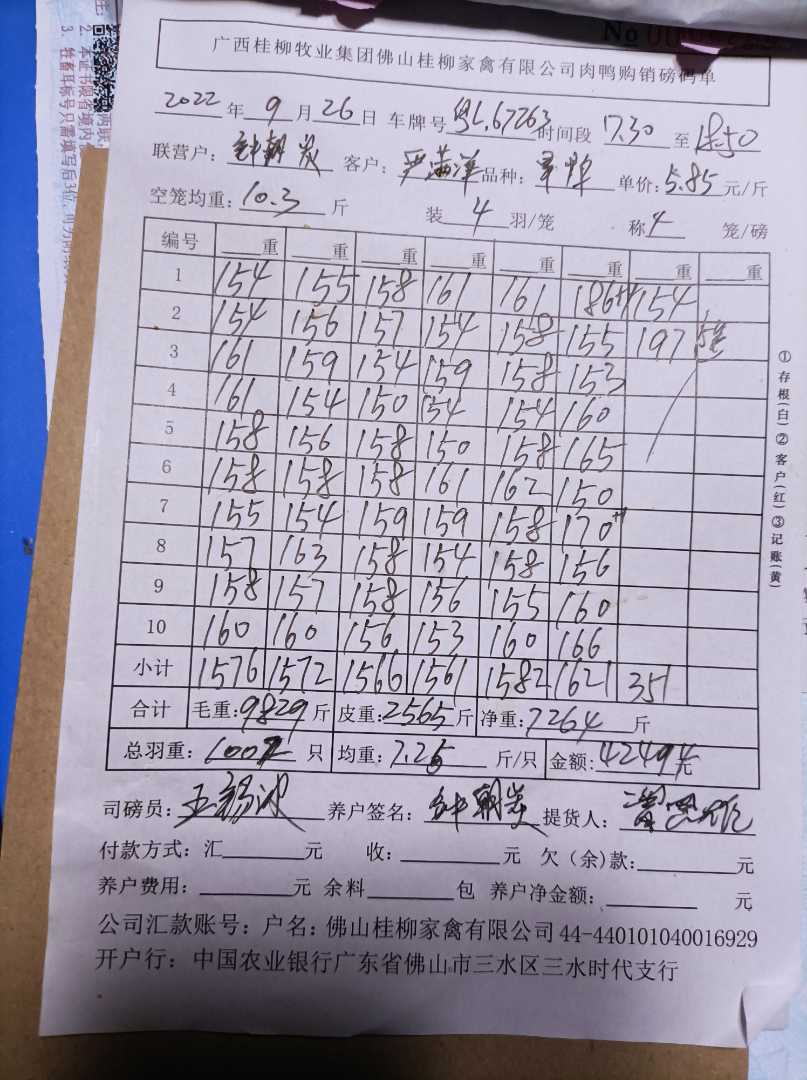 No
2、本证书限省境内
3、牲畜耳标号只需填写后3位
广西桂柳牧业集团佛山桂柳家禽有限公司肉鸭购销磅码单
2022 年 9 月 26 日 车牌号 粤L.67263 时间段 17.30 至 18:50
联营户: 客户: 品种: 单价: 5.85 元/斤
空笼均重: 10.3 斤 装 4 羽/笼 称 4 笼/磅
编号 重 重 重 重 重 重 重 重
1 154 155 158 161 161 186 154
2 154 156 157 154 158 155 197
3 161 159 154 159 158 153
4 161 154 150 154 154 160
5 158 156 158 150 158 165
6 158 158 158 161 162 150
7 155 154 159 159 158 170
8 157 163 158 154 158 156
9 158 157 158 156 155 160
10 160 160 156 153 160 166
小计 1576 1572 1566 1561 1582 1621 351
合计 毛重: 9829 斤 皮重: 2565 斤 净重: 7264 斤
总羽重: 1002 只 均重: 7.25 斤/只 金额: 42494 元
司磅员: 养户签名: 提货人:
付款方式: 汇 元 收: 元 欠(余)款: 元
养户费用: 元 余料 包 养户净金额: 元
公司汇款账号: 户名: 佛山桂柳家禽有限公司 44-440101040016929
开户行: 中国农业银行广东省佛山市三水区三水时代支行
①存根(白)②客户(红)③记账(黄)